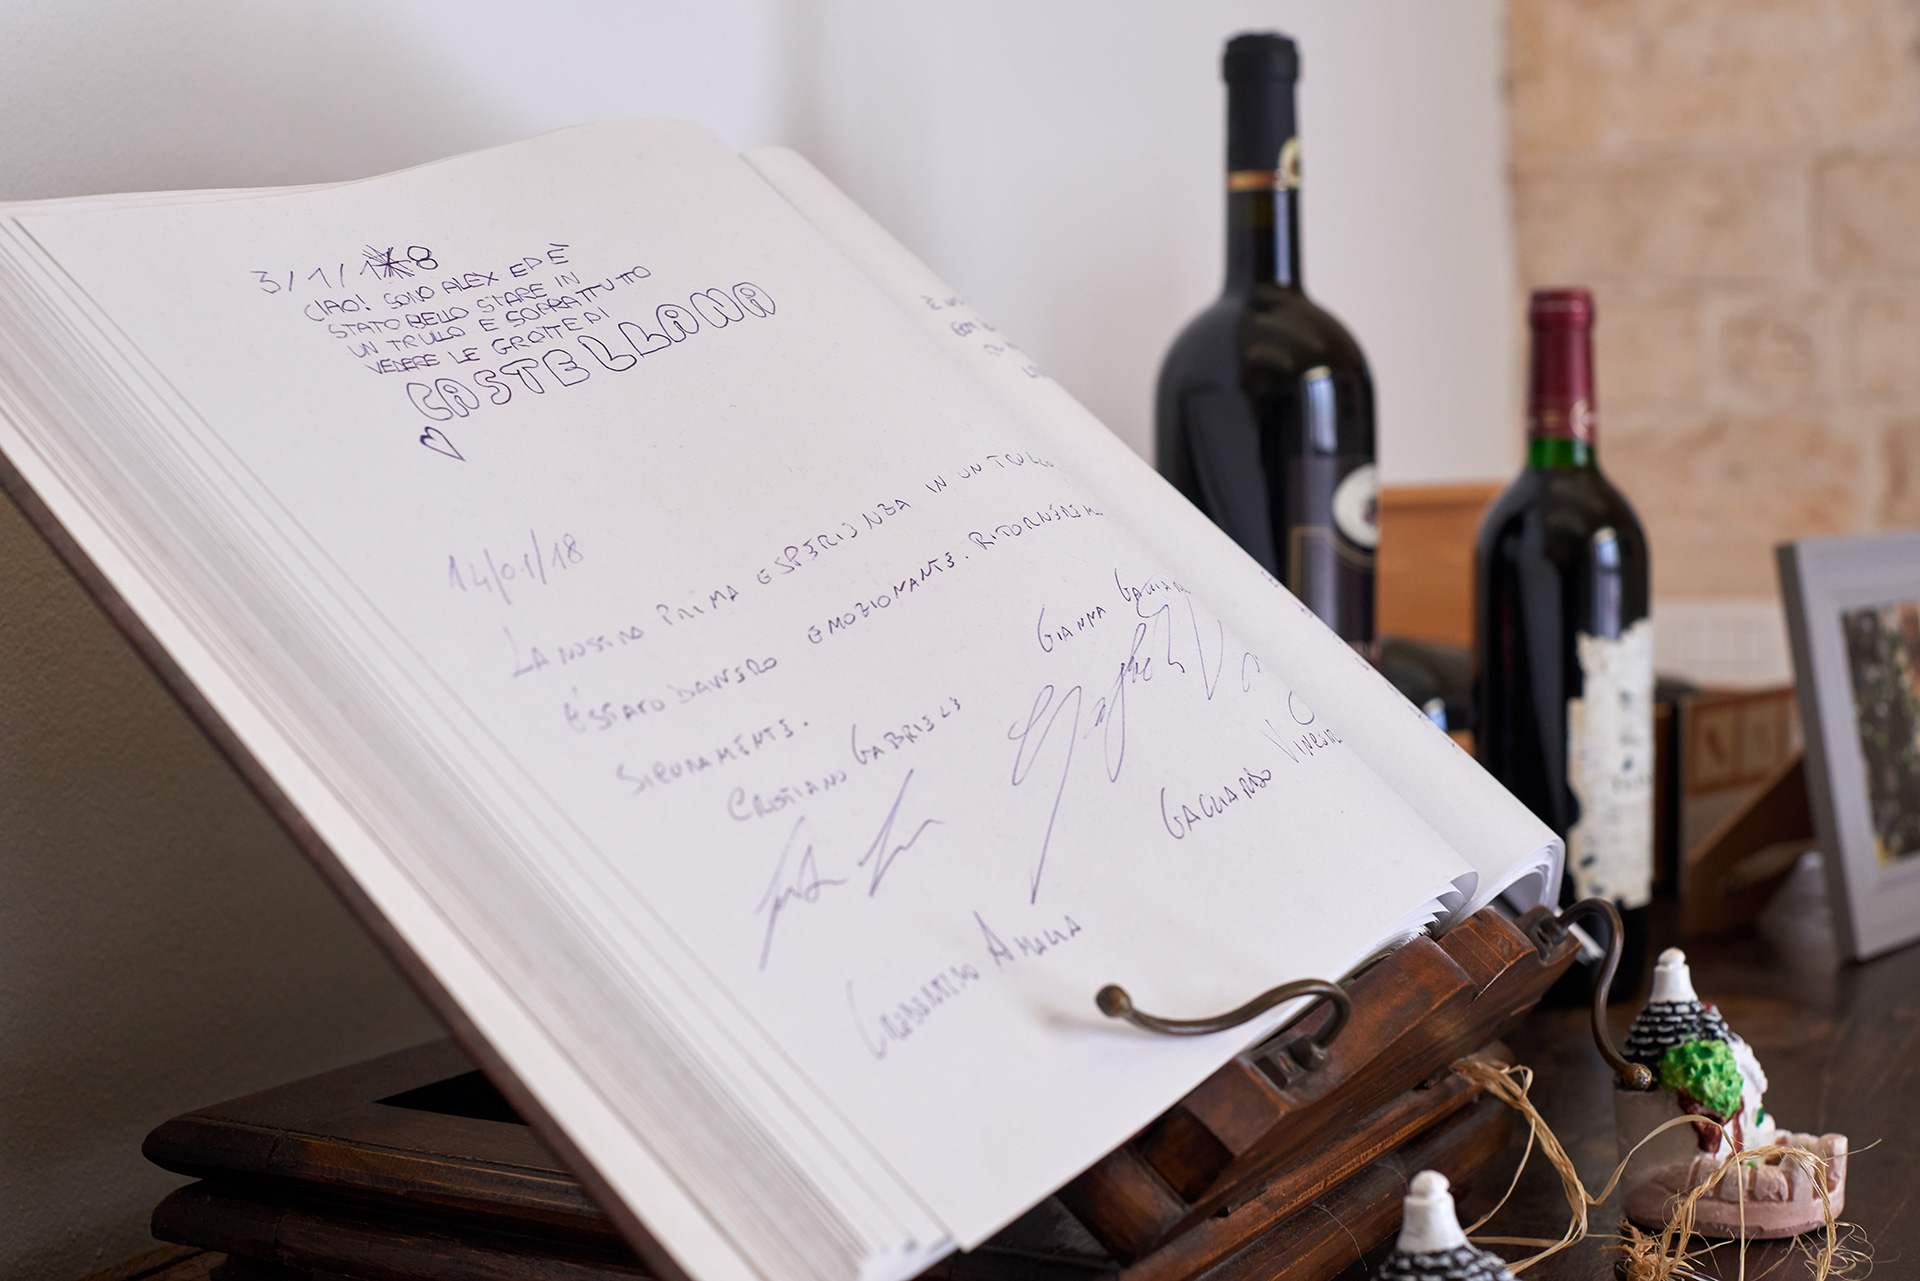 3/1/18
CIAO! SONO ALEX ED È
STATO BELLO STARE IN
UN TRULLO E SOPRATTUTTO
VEDERE LE GROTTE DI
CASTELLANA
14/01/18
LA NOSTRA PRIMA ESPERIENZA IN UN TRULLO
É STATO DAVVERO EMOZIONANTE. RITORNEREMO
SICURAMENTE.
GIANNA
CRISTIANO GABRIELE
GAGLIARDO
AMALIA